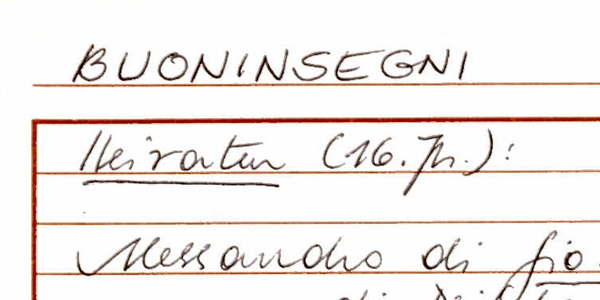 BUONINSEGNI
Heiraten (16. Jh.):
Alessandro di Gio
di